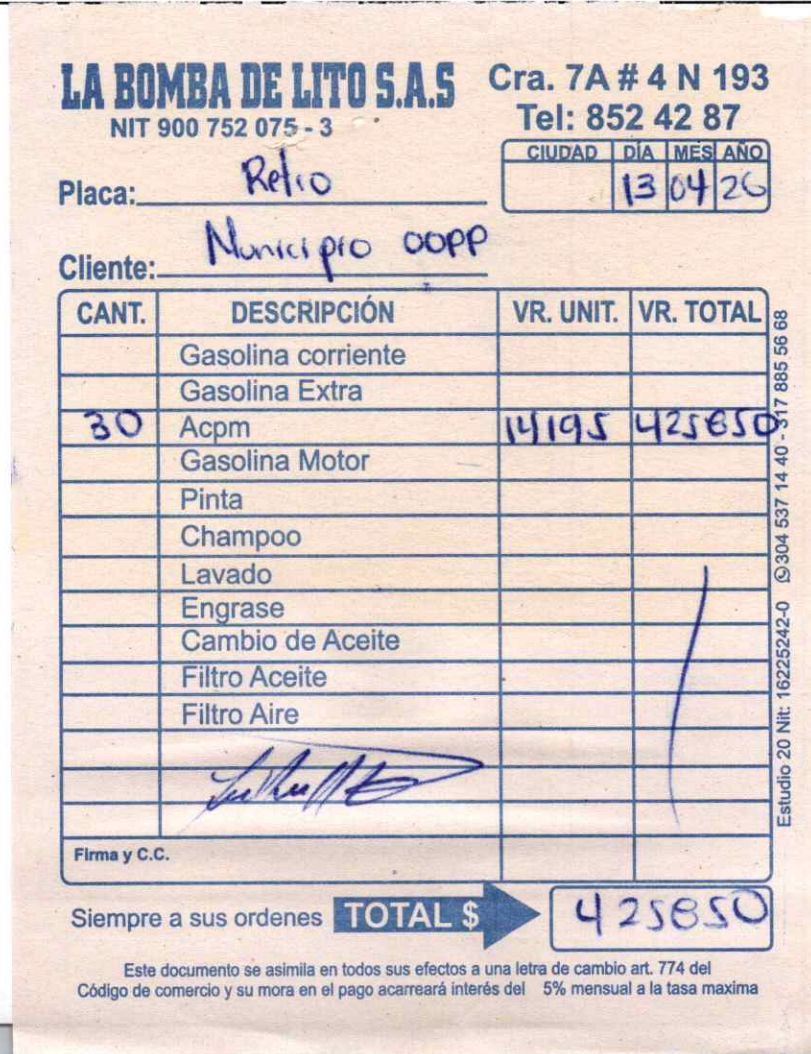 LA BOMBA DE LITO S.A.S
NIT 900 752 075 - 3
Cra. 7A # 4 N 193
Tel: 852 42 87
CIUDAD DÍA MES AÑO
13 04 26
Placa: Retro
Cliente: Municipio OOPP
CANT. DESCRIPCIÓN VR. UNIT. VR. TOTAL
Gasolina corriente
Gasolina Extra
30 Acpm 14195 425850
Gasolina Motor
Pinta
Champoo
Lavado
Engrase
Cambio de Aceite
Filtro Aceite
Filtro Aire
Firma y C.C.
Siempre a sus ordenes TOTAL $ 425850
Este documento se asimila en todos sus efectos a una letra de cambio art. 774 del
Código de comercio y su mora en el pago acarreará interés del 5% mensual a la tasa maxima
Estudio 20 Nit: 16225242-0 304 537 14 40 - 317 885 56 68